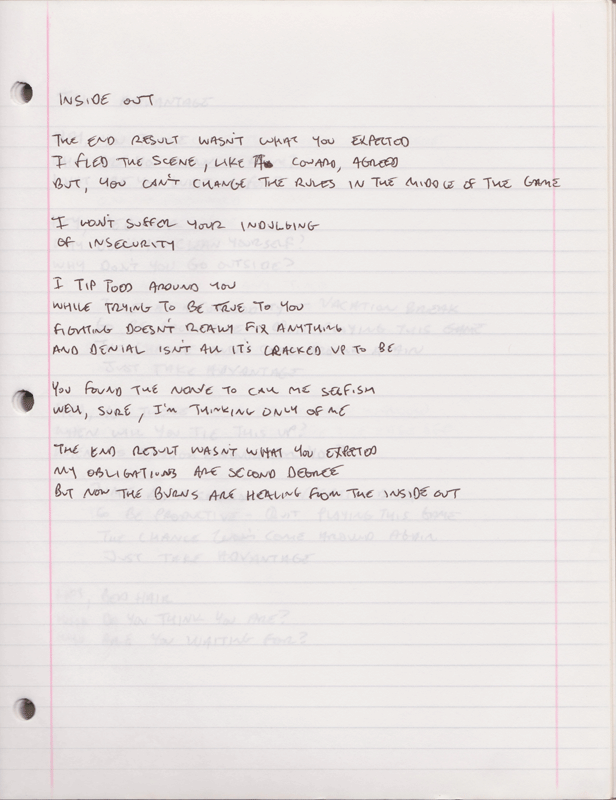 INSIDE OUT
THE END RESULT WASN'T WHAT YOU EXPECTED
I FLED THE SCENE, LIKE A COWARD, AGREED
BUT, YOU CAN'T CHANGE THE RULES IN THE MIDDLE OF THE GAME
I WON'T SUFFER YOUR INDULGING
OF INSECURITY
I TIP TOED AROUND YOU
WHILE TRYING TO BE TRUE TO YOU
FIGHTING DOESN'T REALLY FIX ANYTHING
AND DENIAL ISN'T ALL IT'S CRACKED UP TO BE
YOU FOUND THE NERVE TO CALL ME SELFISH
WELL, SURE, I'M THINKING ONLY OF ME
THE END RESULT WASN'T WHAT YOU EXPECTED
MY OBLIGATIONS ARE SECOND DEGREE
BUT NOW THE BURNS ARE HEALING FROM THE INSIDE OUT